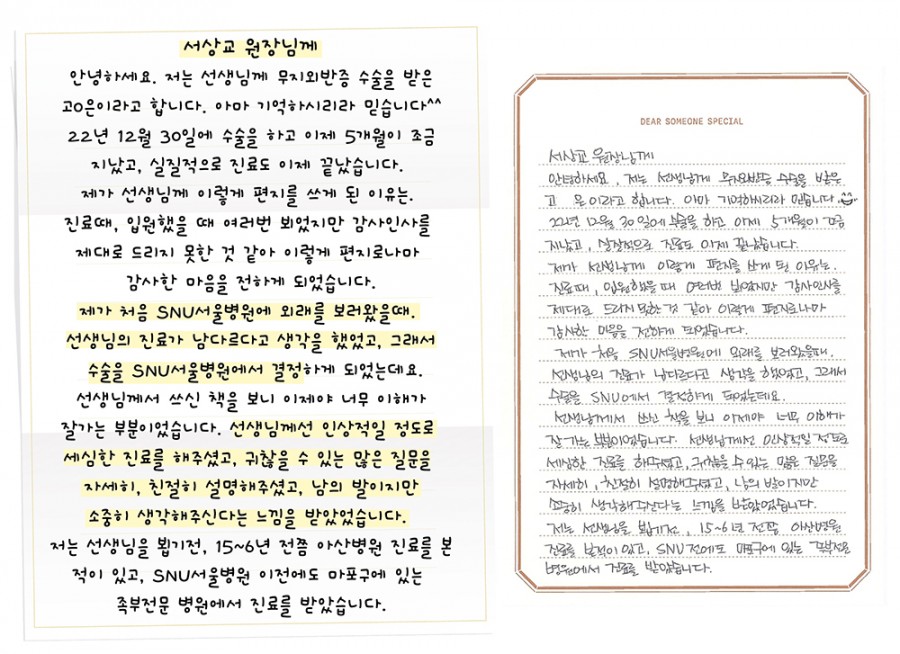 서상교 원장님께
안녕하세요. 저는 선생님께 무지외반증 수술을 받은
고o은이라고 합니다. 아마 기억하시리라 믿습니다^^
22년 12월 30일에 수술을 하고 이제 5개월이 조금
지났고, 실질적으로 진료도 이제 끝났습니다.
제가 선생님께 이렇게 편지를 쓰게 된 이유는.
진료때, 입원했을 때 여러번 뵈었지만 감사인사를
제대로 드리지 못한 것 같아 이렇게 편지로나마
감사한 마음을 전하게 되었습니다.
제가 처음 SNU서울병원에 외래를 보러왔을때.
선생님의 진료가 남다르다고 생각을 했었고, 그래서
수술을 SNU서울병원에서 결정하게 되었는데요.
선생님께서 쓰신 책을 보니 이제야 너무 이해가
잘가는 부분이었습니다. 선생님께선 인상적일 정도로
세심한 진료를 해주셨고, 귀찮을 수 있는 많은 질문을
자세히, 친절히 설명해주셨고, 남의 발이지만
소중히 생각해주신다는 느낌을 받았었습니다.
저는 선생님을 뵙기전, 15~6년 전쯤 아산병원 진료를 본
적이 있고, SNU서울병원 이전에도 마포구에 있는
족부전문 병원에서 진료를 받았습니다.
DEAR SOMEONE SPECIAL
서상교 원장님께
안녕하세요, 저는 선생님께 무지외반증 수술을 받은
고 은이라고 합니다. 아마 기억하시리라 믿습니다.
22년 12월 30일에 수술을 하고 이제 5개월이 조금
지났고, 실질적으로 진료도 이제 끝났습니다.
제가 선생님께 이렇게 편지를 쓰게 된 이유는.
진료때, 입원했을 때 여러번 뵈었지만 감사인사를
제대로 드리지 못한 것 같아 이렇게 편지로나마
감사한 마음을 전하게 되었습니다.
제가 처음 SNU서울병원에 외래를 보러왔을때.
선생님의 진료가 남다르다고 생각을 했었고, 그래서
수술을 SNU에서 결정하게 되었는데요.
선생님께서 쓰신 책을 보니 이제야 너무 이해가
잘 가는 부분이었습니다. 선생님께선 인상적일 정도로
세심한 진료를 해주셨고, 귀찮을 수 있는 많은 질문을
자세히, 친절히 설명해주셨고, 남의 발이지만
소중히 생각해주신다는 느낌을 받았었습니다.
저는 선생님을 뵙기전, 15~6년 전쯤 아산병원
진료를 본적이 있고, SNU전에도 마포구에 있는 족부전문
병원에서 진료를 받았습니다.